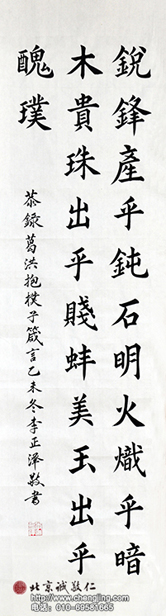 銳鋒產乎鈍石明火熾乎暗
木貴珠出乎賤蚌美玉出乎
醜璞
恭錄葛洪抱樸子箴言乙未冬李正澤敬書
北京诚敬仁
http://www.chengjing.com
电话：010-69581665